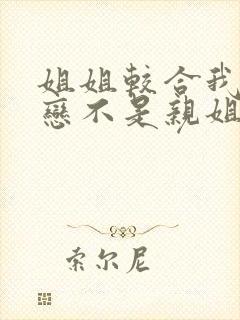 姐姐較合我
戀不是親姐
索尔尼